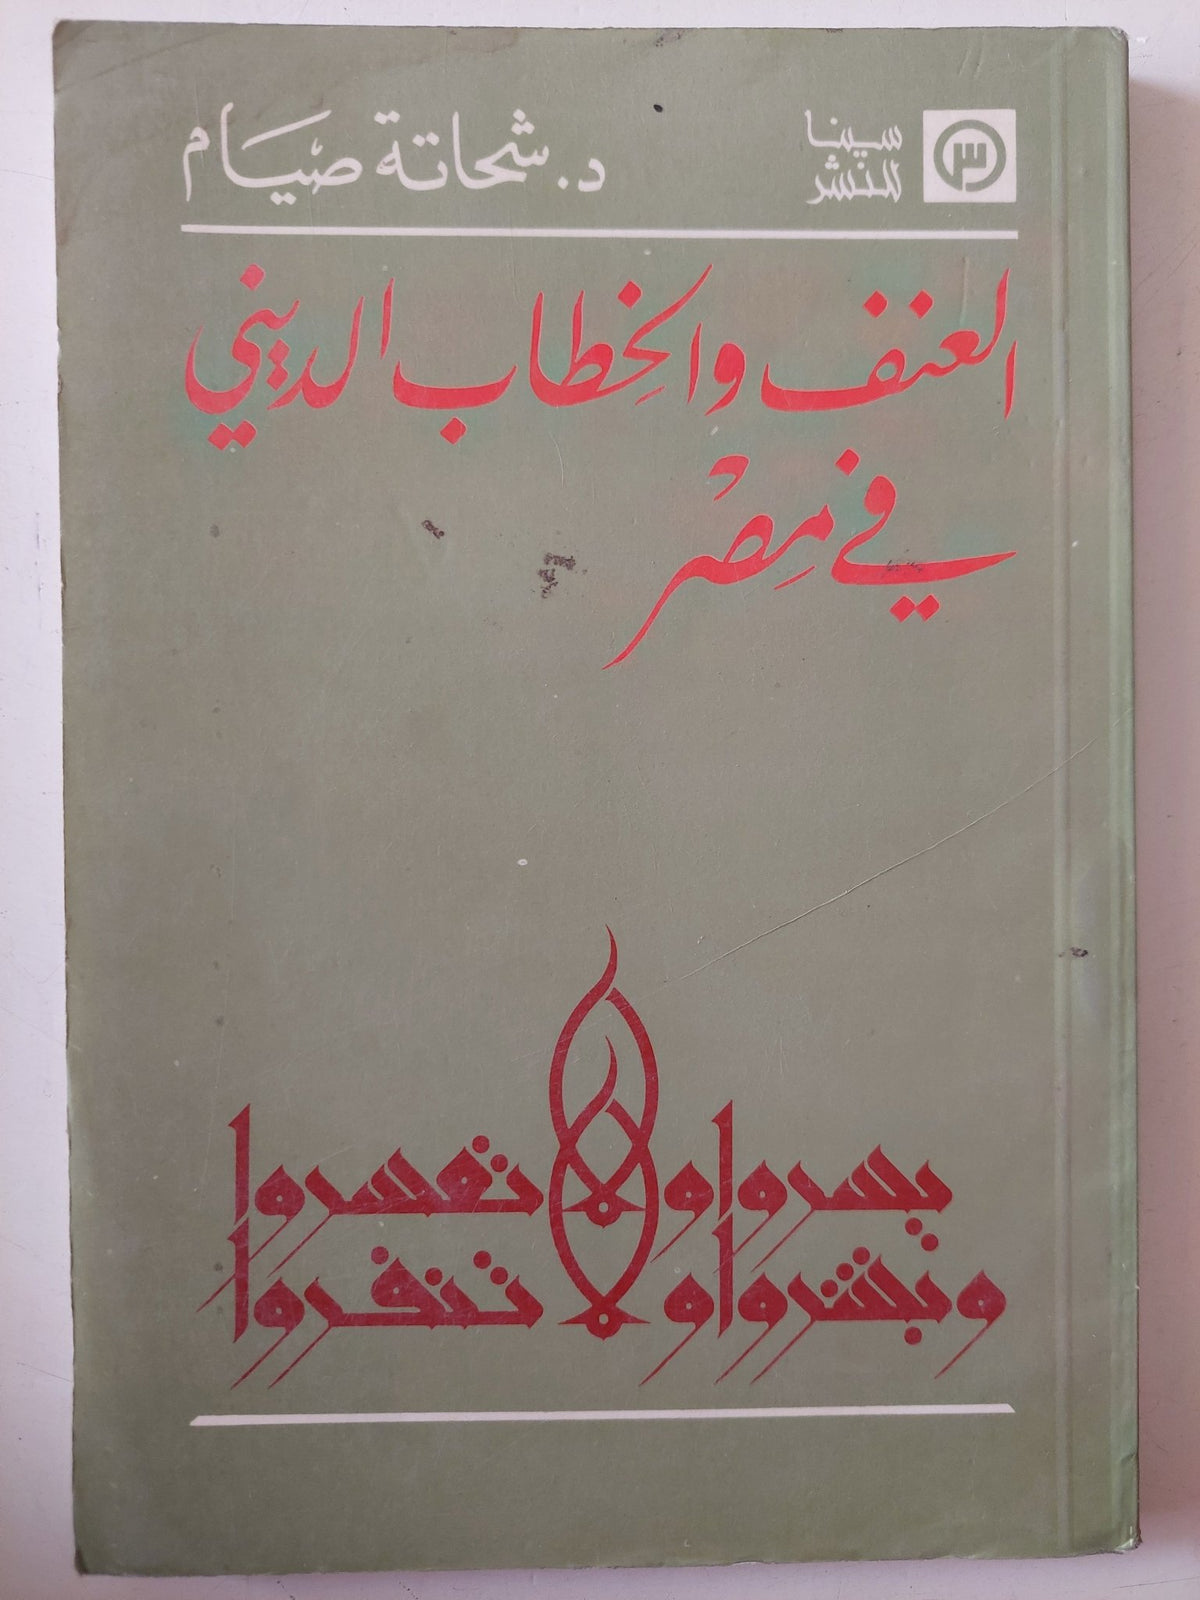 سينا
للنشر
د. شحاتة صيام
العنف والخطاب الديني
في مصر
يسروا ولا تعسروا
وبشروا ولا تنفروا